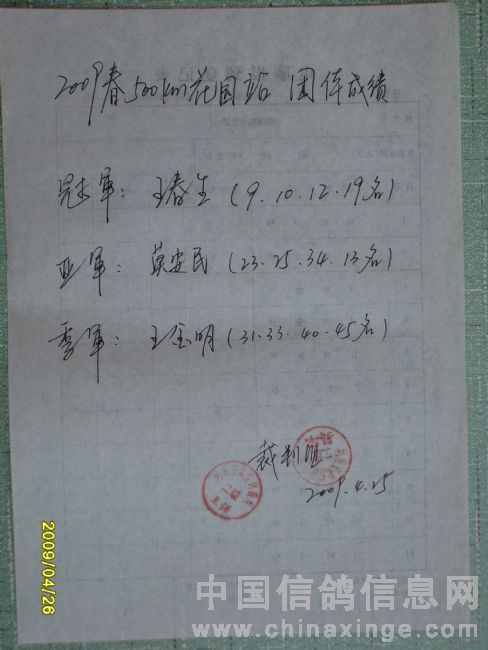 2009春500km花园站 团体成绩
冠军: 王春生 (9.10.12.19名)
亚军: 莫安民 (23.25.34.13名)
季军: 王金明 (31.33.40.45名)
裁判组
2009.4.25
2009/04/26
中国信鸽信息网
www.chinaxinge.com